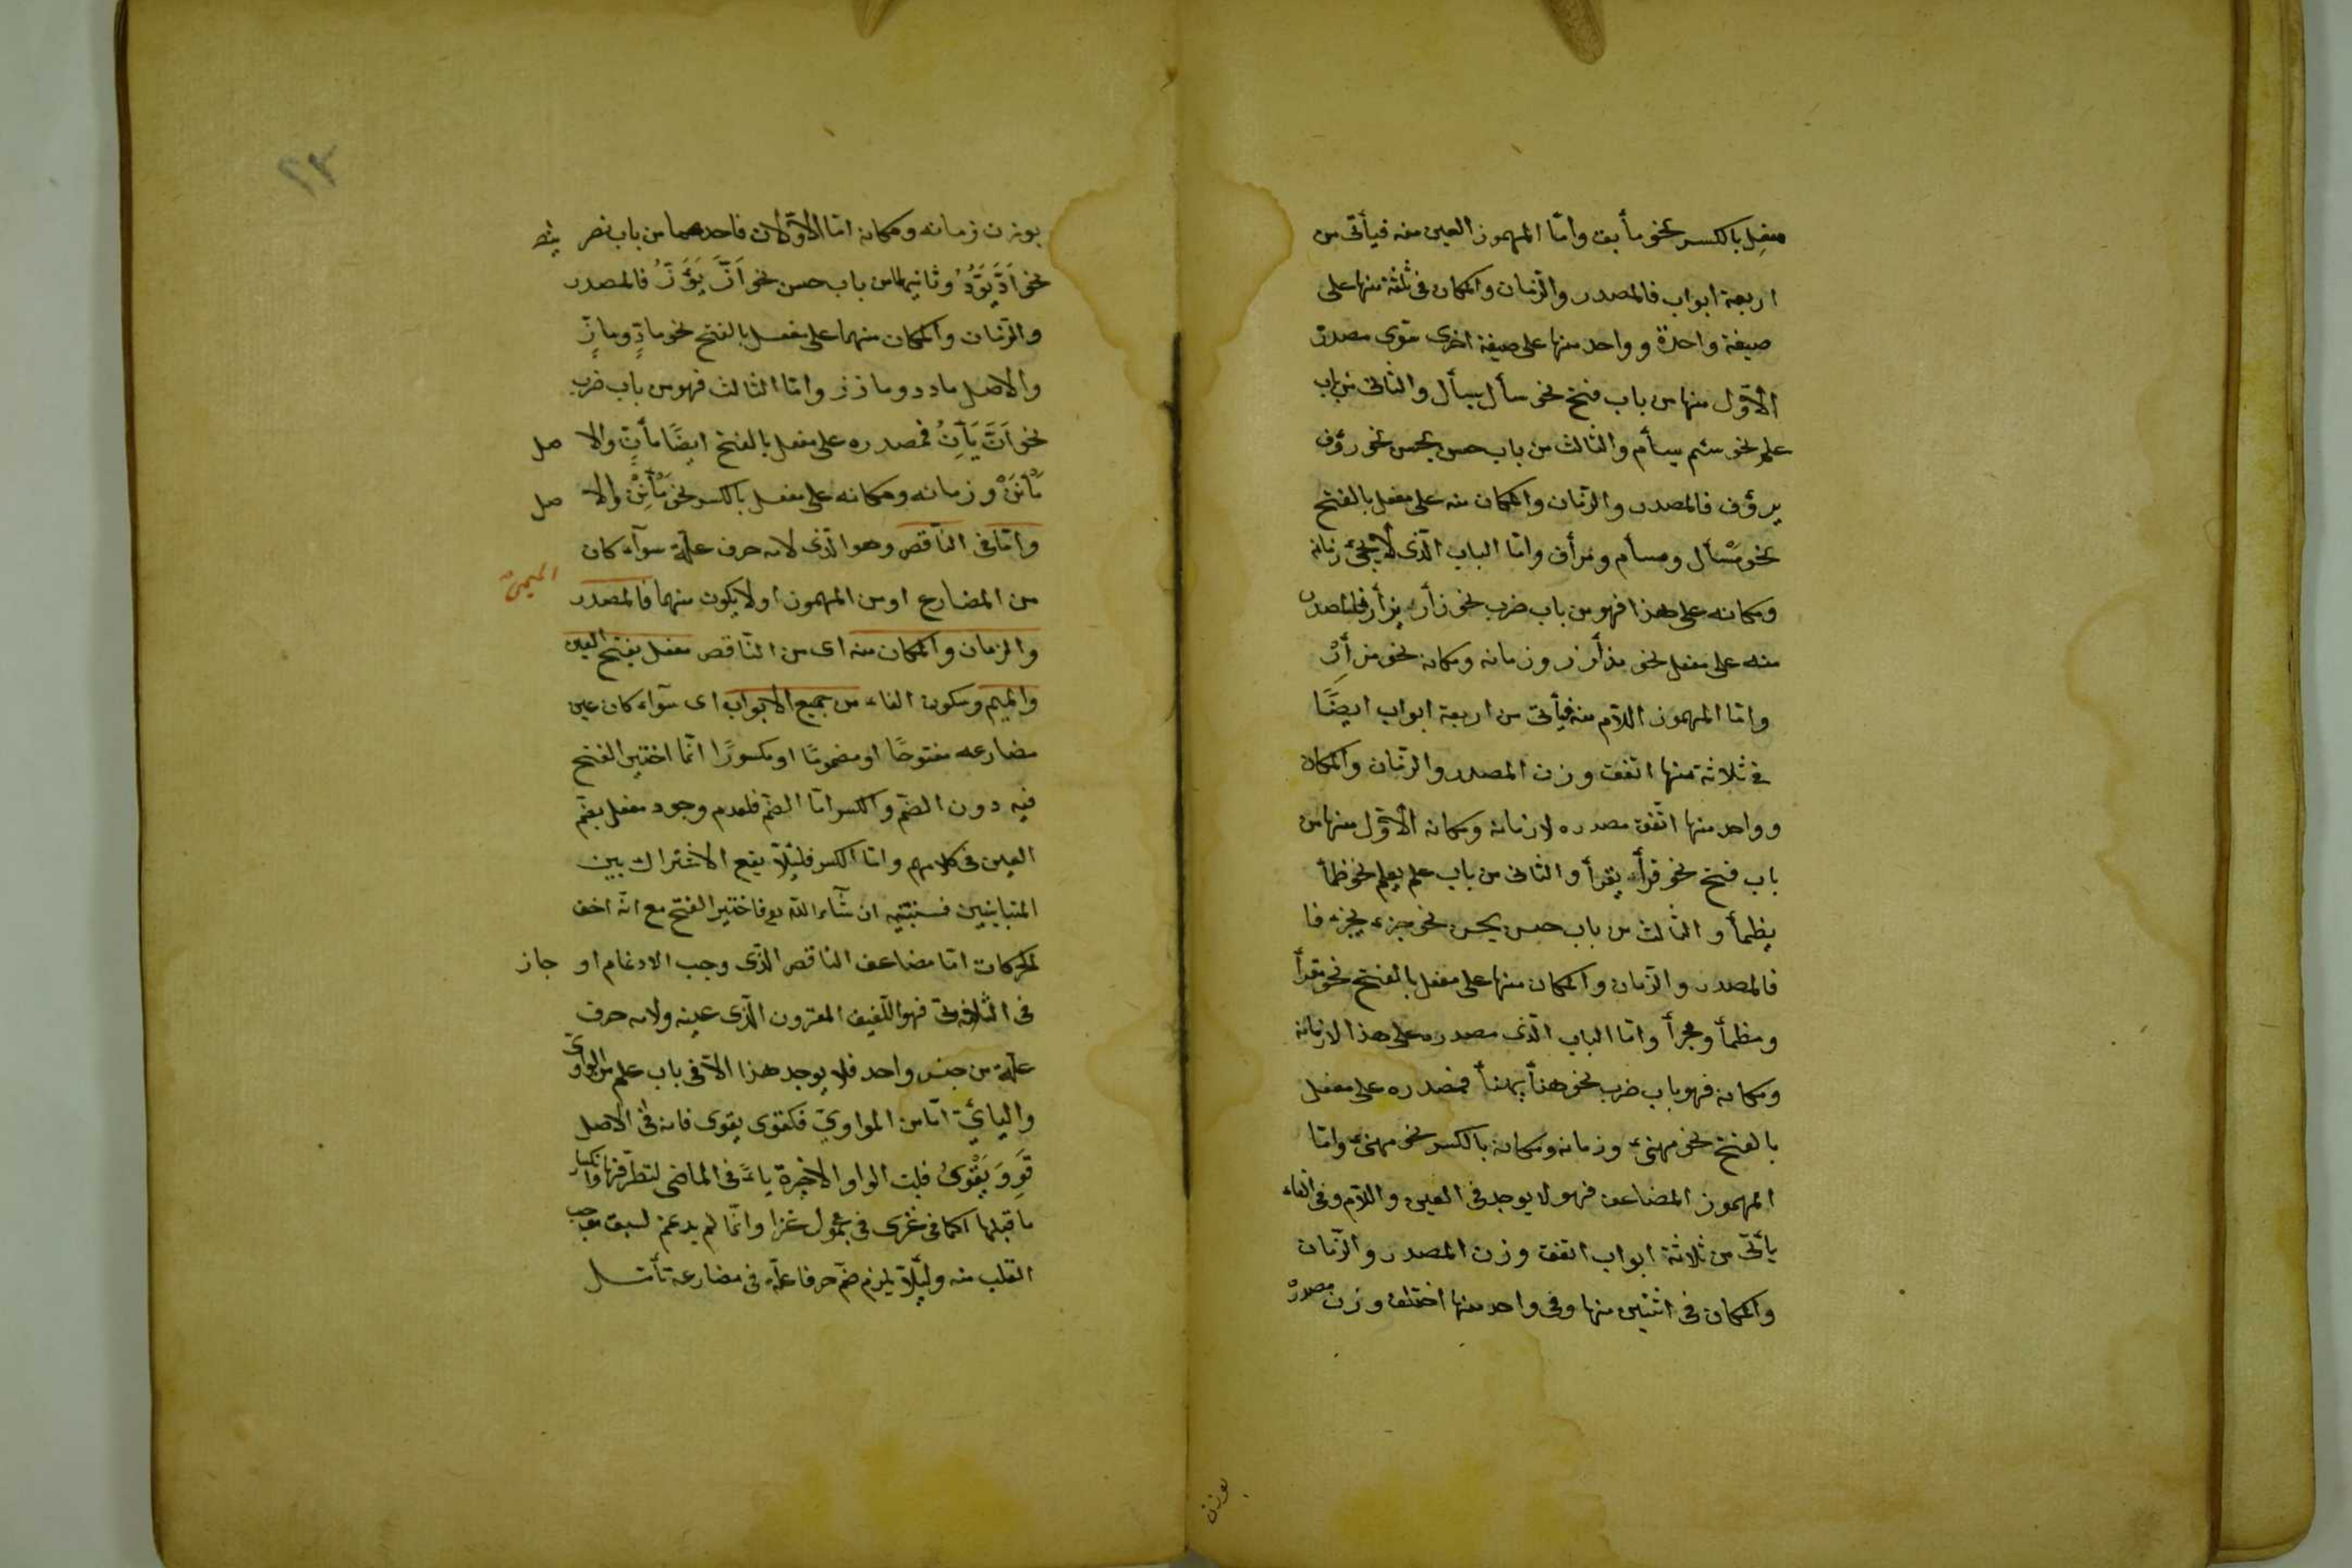 مفعِل بالكسر نحو مأبق وامّا المهموز العين منه فيأتى من
اربعة ابواب فالمصدر والزمان والمكان فى ثلثة منها على
صيغة واحدة وواحد منها على صيغة اخرى سوى مصدره
الأوّل منها من باب فتح نحو سأل يسأل والثانى من باب
علم نحو سئم يسأم والثالث من باب حسن يحسن نحو رؤف
يرؤف فالمصدر والزمان والمكان منه على مفعل بالفتح
نحو مَسْأل ومسأم ومرأف وامّا الباب الّذى لا يجئ زمانه
ومكانه على هذا فهو من باب ضرب نحو زأر يزأر فالمصدر
منه على مفعل نحو وزمانه ومكانه نحو مزأِرْ
وامّا المهموز اللّام منه فيأتى من اربعة ابواب ايضًا
فى ثلاثة منها اتفق وزن المصدر والزمان والمكان
وواحد منها اتّفق مصدره لا زمانه ومكانه الأوّل منها من
باب فتح نحو قرأ يقرأ والثانى من باب علم يعلم نحو ظمأ
يظمأ والثالث من باب حسن يحسن نحو جزء يجزء فا
فالمصدر والزّمان والمكان منها على مفعل بالفتح نحو مقرأ
ومظمأ ومجزأ وامّا الباب الّذى مصدره على هذا لا زمانه
ومكانه فهو باب ضرب نحو هنأ يهنأ فمصدره على مفعل
بالفتح نحو مهنىء وزمانه ومكانه بالكسر نحو مهنىء وامّا
المهموز المضاعف فهو لا يوجد فى العين واللّام وفى الفاء
يأتى من ثلاثة ابواب اتفق وزن المصدر والزّمان
والمكان فى اثنين منها وفى واحد منها اختلف وزن مصدره
بوزن
٢٣
بوزن زمانه ومكانه امّا الاوّلان فاحدهما من باب نصر
نحو اَدَّ يَؤُدُّ وثانيهما من باب حسن نحو اَزَّ يَؤَزُّ فالمصدر
والزّمان والمكان منهما على مفعل بالفتح نحو مادٍّ ومازٍّ
والاصل مادد ومازز وامّا الثالث فهو من باب ضرب
نحو اَنَّ يَأِنُّ فمصدره على مفعل بالفتح ايضًا مأنٍّ والا صل
مَأْنَنْ وزمانه ومكانه على مفعل بالكسر نحو مَأْنِنْ والا صل
وامّا فى النّاقص وهو الّذى لامه حرف علّة سوآء كان
من المضارع او من المهموز او لا يكون منهما فالمصدر الميمىّ
والزمان والمكان منه اى من النّاقص مفعل بفتح العين
والميم وسكون الفاء من جميع الابواب اى سوآء كان عين
مضارعه مفتوحًا او مضمومًا او مكسورًا انّما اختير الفتح
فيه دون الضّم والكسر امّا الضّم فلعدم وجود مفعل بضّم
العين فى كلامهم وامّا الكسر فلئلّا يقع الاشتراك بين
المتباينين فسنبيّنه ان شآء اللّه تع فاختير الفتح مع انّه اخف
الحركات امّا مضاعف الناقص الّذى وجب الادغام او جاز
فى الثلاثى فهو اللّفيف المقرون الّذى عينه ولامه حرف
علّة من جنس واحد فلا يوجد هذا الّا فى باب علم من الواوىّ
واليائىّ امّا من الواوىّ فكقوى يقوى فانه فى الاصل
قَوِوَ يَقْوَىُ قلبت الواو الاخيرة ياءً فى الماضى لتطرّفها وانكسار
ما قبلها كما فى غزى فى مجهول غزا وانّما لم يدغم لسبق موجب
القلب منه ولئلّا يلزم ضمّ حرف علّة فى مضارعه تأمّل